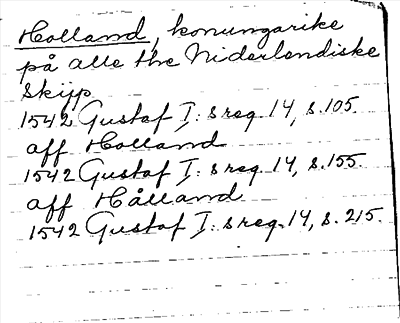 Holland, konungarike
på alle the Niderlendiske
Skijp
1542 Gustaf I: s reg. 14, s. 105.
aff Holland
1542 Gustaf I: s reg. 14, s. 155.
aff Hålland
1542 Gustaf I: s reg. 14, s. 215.